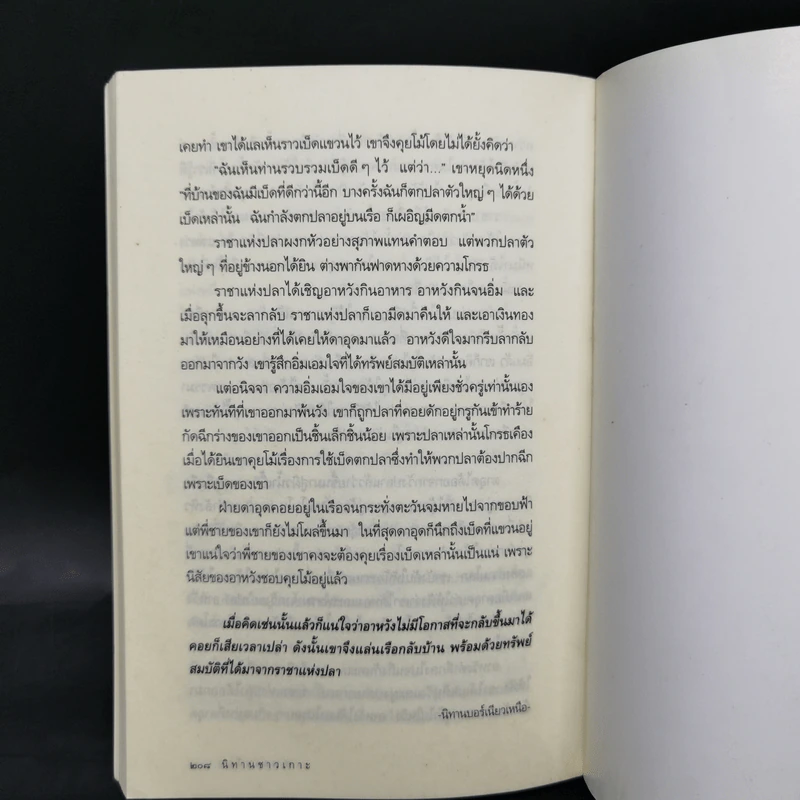 เคยทำ เขาได้แลเห็นราวเบ็ดแขวนไว้ เขาจึงคุยโม้โดยไม่ได้ยั้งคิดว่า
"ฉันเห็นท่านรวบรวมเบ็ดดี ๆ ไว้ แต่ว่า..." เขาหยุดนิดหนึ่ง
"ที่บ้านของฉันมีเบ็ดที่ดีกว่านี้อีก บางครั้งฉันก็ตกปลาตัวใหญ่ ๆ ได้ด้วย
เบ็ดเหล่านั้น ฉันกำลังตกปลาอยู่บนเรือ ก็เผอิญมีดตกน้ำ"
ราชาแห่งปลาผงกหัวอย่างสุภาพแทนคำตอบ แต่พวกปลาตัว
ใหญ่ ๆ ที่อยู่ข้างนอกได้ยิน ต่างพากันฟาดหางด้วยความโกรธ
ราชาแห่งปลาได้เชิญอาหวังกินอาหาร อาหวังกินจนอิ่ม และ
เมื่อลุกขึ้นจะลากลับ ราชาแห่งปลาก็เอามีดมาคืนให้ และเอาเงินทอง
มาให้เหมือนอย่างที่ได้เคยให้ดาอุดมาแล้ว อาหวังดีใจมากรีบลากลับ
ออกมาจากวัง เขารู้สึกอิ่มเอมใจที่ได้ทรัพย์สมบัติเหล่านั้น
แต่อนิจจา ความอิ่มเอมใจของเขาได้มีอยู่เพียงชั่วครู่เท่านั้นเอง
เพราะทันทีที่เขาออกมาพ้นวัง เขาก็ถูกปลาที่คอยดักอยู่กรูกันเข้าทำร้าย
กัดฉีกร่างของเขาออกเป็นชิ้นเล็กชิ้นน้อย เพราะปลาเหล่านั้นโกรธเคือง
เมื่อได้ยินเขาคุยโม้เรื่องการใช้เบ็ดตกปลาซึ่งทำให้พวกปลาต้องปากฉีก
เพราะเบ็ดของเขา
ฝ่ายดาอุดคอยอยู่ในเรือจนกระทั่งตะวันจมหายไปจากขอบฟ้า
แต่พี่ชายของเขาก็ยังไม่โผล่ขึ้นมา ในที่สุดดาอุดก็นึกถึงเบ็ดที่แขวนอยู่
เขาแน่ใจว่าพี่ชายของเขาคงจะต้องคุยเรื่องเบ็ดเหล่านั้นเป็นแน่ เพราะ
นิสัยของอาหวังชอบคุยโม้อยู่แล้ว
เมื่อคิดเช่นนั้นแล้วก็แน่ใจว่าอาหวังไม่มีโอกาสที่จะกลับขึ้นมาได้
คอยก็เสียเวลาเปล่า ดังนั้นเขาจึงแล่นเรือกลับบ้าน พร้อมด้วยทรัพย์
สมบัติที่ได้มาจากราชาแห่งปลา
-นิทานบอร์เนียวเหนือ-
๒๐๘ นิทานชาวเกาะ